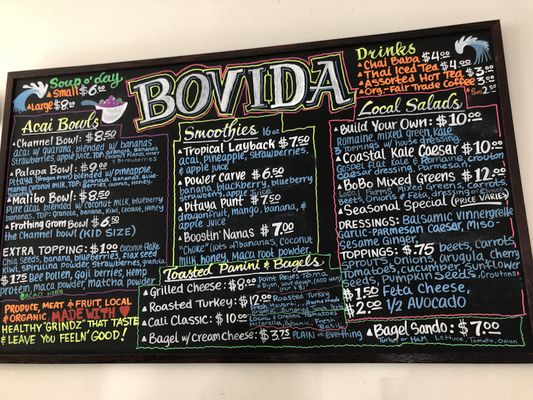 Soup o' day
Small $6
Large $8
BOVIDA
Drinks
Chai Baba $4.00
Thai Iced Tea $4.00
Assorted Hot Tea $3
Org.-Fair Trade Coffee
Acai Bowls
Channel Bowl: $8.50
acai w/ guarana, blended w/ bananas
Strawberries, apple juice
Palapa Bowl: $9.00
Malibu Bowl: $8.50
Pure acai, blended w/ coconut milk,
bananas, TOP: Granola, banana, Kiwi, Coconut, Honey
Frothing Grom Bowl: $6.50
(KID SIZE)
EXTRA TOPPING: $1.00 Coconut flake
Chia seeds, banana, blueberries, flax seed
Kiwi, spirulina powder, Strawberries, granola
$1.75 Bee Pollen, Goji berries, Hemp
protein, maca powder, matcha powder
CACAO NIBS
PRODUCE, MEAT & FRUIT, LOCAL
& ORGANIC. MADE WITH
HEALTHY "GRINDZ" THAT TASTE
& LEAVE YOU FEELN' GOOD!
Smoothies 16oz
Tropical Layback $7.50
acai, pineapple, strawberries,
& apple juice
Power Carve $6.50
banana, blackberry, blueberry
strawberry, apple juice
Pitaya Punt $7.50
dragonfruit, mango, banana, &
apple juice
Boostin' Nanas $7.00
"Choke" (lots of) bananas, coconut
milk, honey, Maca root powder
Toasted Panini & Bagels
Grilled Cheese: $8.00
Roasted Turkey: $12.00
Cali Classic: $10.00
Bagel w/ Cream Cheese: $3.75 PLAIN or Everything
Local Salads
Build Your Own: $10.00
Romaine, mixed green, kale
TOPPINGS w/ house dressing
Coastal Kale Caesar $10.00
Gospel Flat Kale & Romaine, Crouton
Caesar dressing, Parmesan
BoBo Mixed Greens $12.00
Farms Mixed greens, Carrots,
Beets, Onions & Feta, dressing of Choice
Seasonal Special (PRICE VARIES)
DRESSINGS: Balsamic vinnergrette
Garlic-Parmesan Caesar, Miso
Sesame Ginger
TOPPINGS: $.75 beets, Carrots,
Sprouts, Onions, arugula, cherry
Tomatoes, cucumber, Sunflower
Seeds, Pumpkin Seeds, Croutons
$1.50 Feta Cheese,
$2.00 1/2 Avocado
Bagel Sando: $7.00
Turkey or Ham, Lettuce, Tomato, Onion